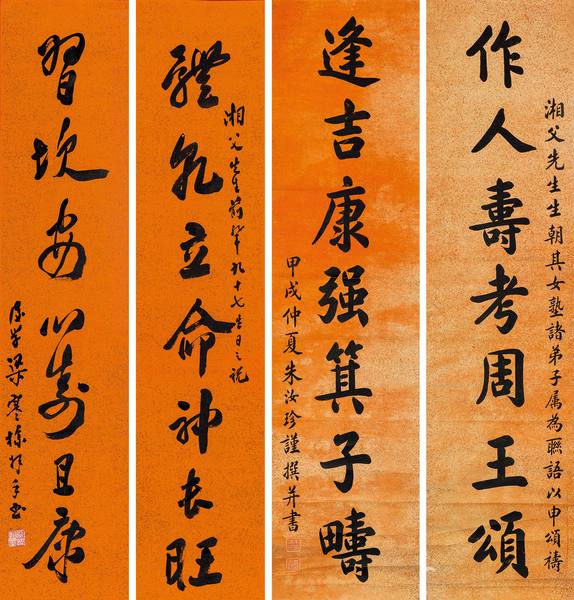 湘父先生生朝其女塾諸弟子属為聯語以申頌禱
作人壽考周王頌
逢吉康强箕子疇
甲戌仲夏朱汝珍謹撰并書
湘父先生前輩九十七日之
體乾立命神長旺
習坎安心壽且康
後学梁寒操拜手書